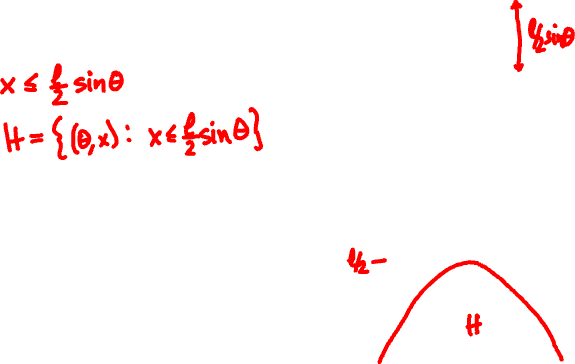 ℓ/2 sinθ
x ≤ ℓ/2 sinθ
H = {(θ,x) : x ≤ ℓ/2 sinθ}
ℓ/2
H